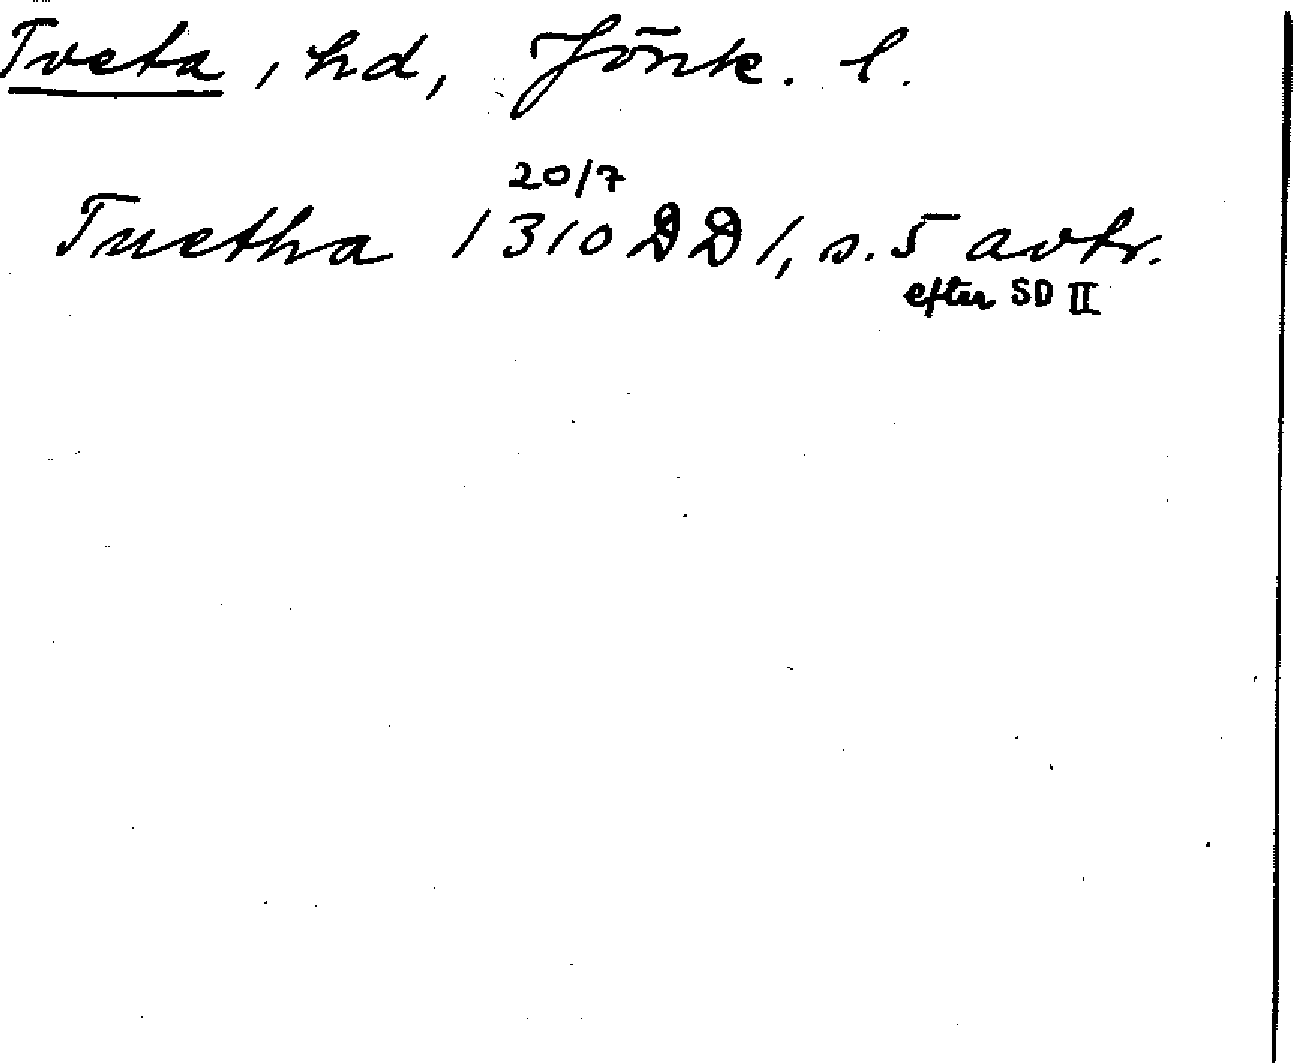 Tveta, hd, Jönk. l.
20/7
Tuetha 1310 DD 1, s. 5 avtr.
efter SD II